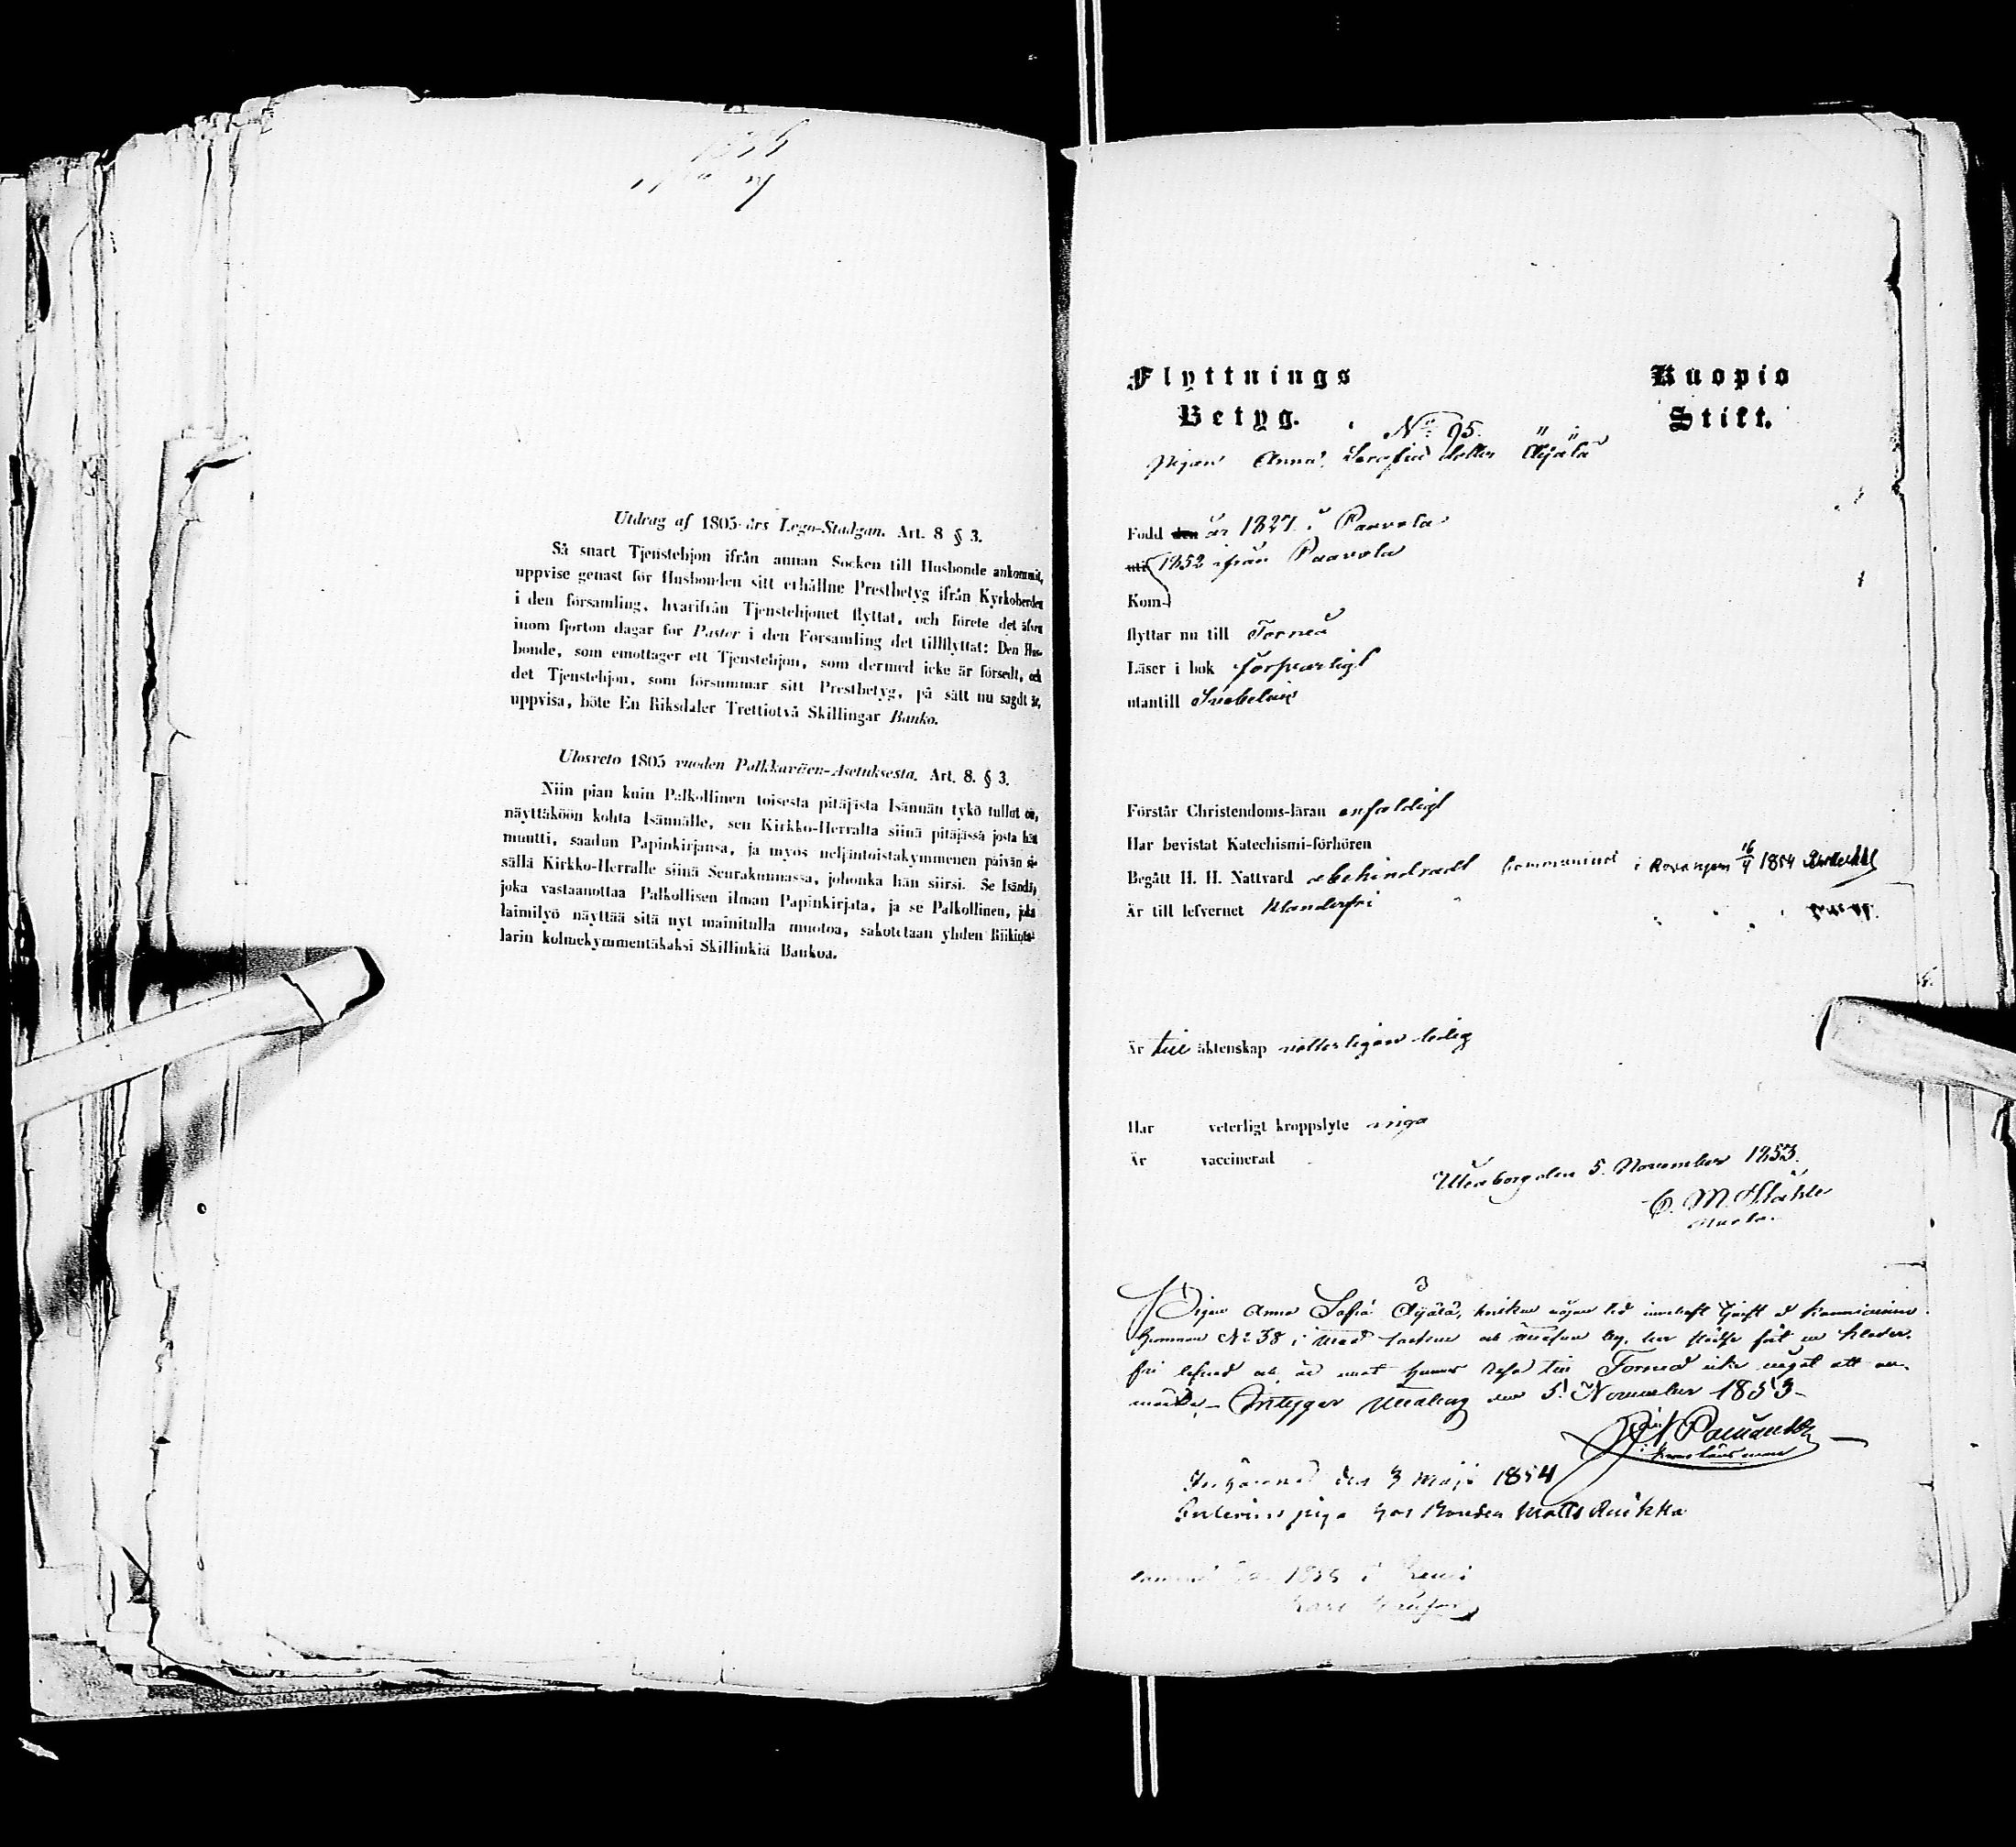 Utdrag af 1805 års Lego-Stadgan. Art. 8 § 3.
Så snart Tjenstehjon ifrån annan Socken till Husbonde ankommit,
uppvise genast för Husbonden sitt erhållne Prestbetyg ifrån Kyrkoherden
i den församling, hvarifrån Tjenstehjonet flyttat, och förete det äfven
inom fjorton dagar för Pastor i den Församling det tillflyttat: Den Hus-
bonde, som emottager ett Tjenstehjon, som dermed icke är försedt, och
det Tjenstehjon, som försummar sitt Prestbetyg, på sätt nu sagdt är,
uppvisa, böte En Riksdaler Trettiotvå Skillingar Banko.
Ulosveto 1805 vuoden Palkkaväen-Asetuksesta. Art. 8. § 3.
Niin pian kuin Palkollinen toisesta pitäjästä Isännän tykö tullut on,
näyttäköön kohta Isännälle, sen Kirkko-Herralta siinä pitäjässä josta hän
muutti, saadun Papinkirjansa, ja myös neljäntoistakymmenen päivän si-
sällä Kirkko-Herralle siinä Seurakunnassa, johonka hän siirsi. Se Isändä,
joka vastaanottaa Palkollisen ilman Papinkirjata, ja se Palkollinen, joka
laimilyö näyttää sitä nyt mainitulla muotoa, sakotetaan yhden Riikinta-
larin kolmekymmentäkaksi Skillinkiä Bankoa.
Flyttnings Kuopio
Betyg. Stift.
No 95.
Pigan Anna Serafia dotter Äijälä
Född den år 1827 i Paavola
uti 1852 ifrån Paavola
Kom
flyttar nu till Torneå
Läser i bok försvarligt
utantill Svebelius
Förstår Christendoms-läran enfaldigt
Har bevistat Katechismi-förhören
Begått H. H. Nattvard obehindradt communicerat i 16/4 1854
Är till lefvernet klanderfri
Är till äktenskap veterligen ledig
Har veterligt kroppslyte inga
Är vaccinerad
Uleåborg den 5. November 1853.
C. M. Ståhle
Pigan Anna Sofia Äijälä, hvilken någon tid innehaft tjenst å
No 38 i och by, har fört en klander-
fri lefnad och är mot hennes resa till Torneå icke något att an-
märka, Intygar Uleåborg den 5. November 1853
Länsman
den 3 Maji 1854
piga hos Bonden Matts
1855 i Kemi